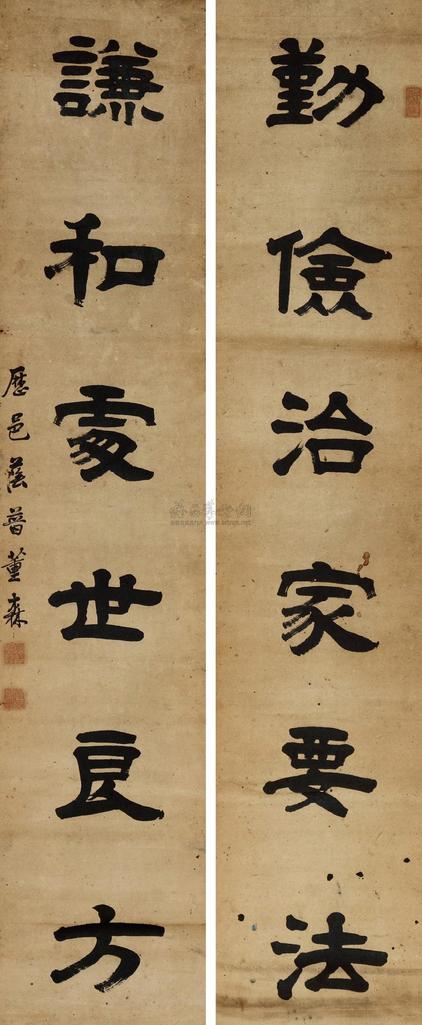 勤儉治家要法
謙和處世良方
歷邑蔭普董森